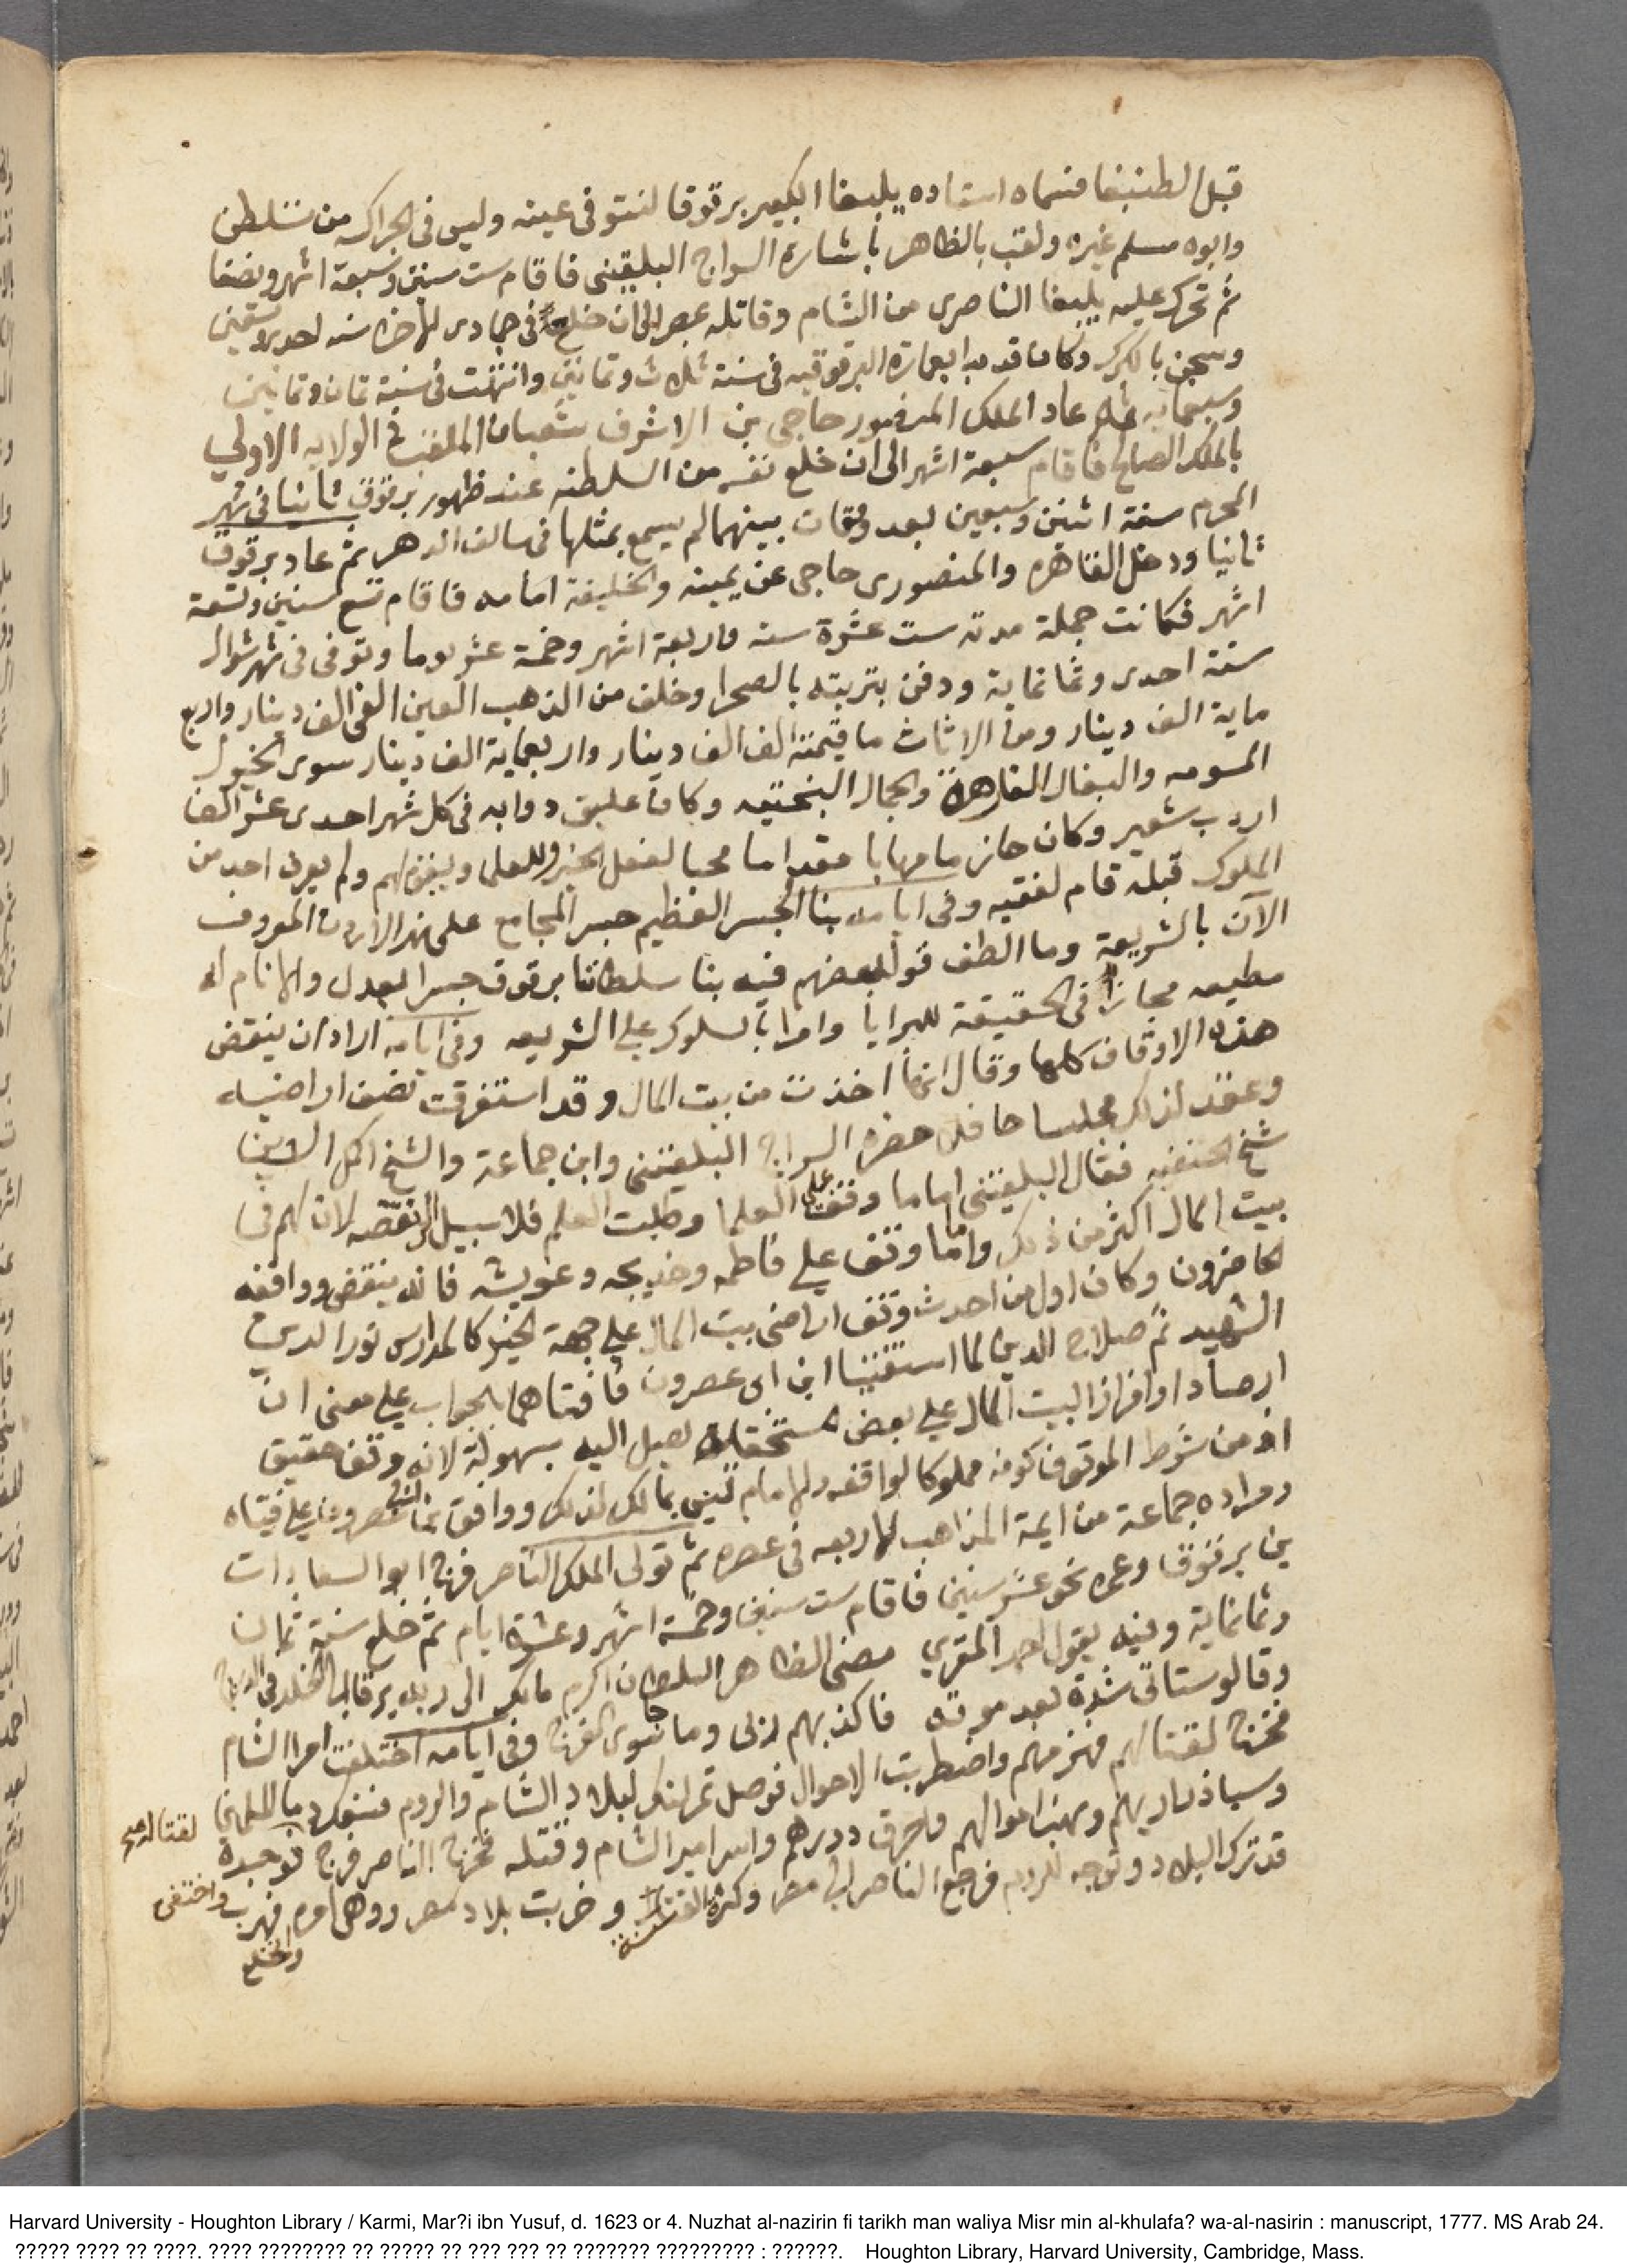 قبل الطنبغا فسماه استاده يلبغا الكبير برقوقا لنتو فى عينه وليس فى الجراكسه من تسلطن
وابوه مسلم غيره ولقب بالظاهر باشارة السراج البلقينى فاقام ست سنين وسبعة اشهر ونصفا
ثم تحرك عليه يلبغا الناصرى من الشام وقاتله بمصر الى ان خلع فى جمادى الاخره سنه احدى وتسعين
وسجن بالكرك وكان قد بدا بعمارة البرقوقيه فى سنة ثلاث وثمانين وانتهت فى سنة ثمان وثمانين
وسبعمايه ثم عاد الملك المنصور حاجى بن الاشرف شعبان الملقب فى الولايه الاولي
بالملك الصالح فاقام سبعة اشهر الى ان خلع نفسه من السلطنه عند ظهور برقوق ثانيا فى شهر
المحرم سنة اثنين وتسعين بعد وقعات بينهما لم يسمع بمثلها فى سالف الدهر ثم عاد برقوق
ثانيا ودخل القاهره والمنصورى حاجى عن يمينه والخليفة امامه فاقام تسع سنين وتسعة
اشهر فكانت جملة مدته ست عشرة سنه واربعة اشهر وخمسة عشر يوما وتوفى فى شهر شوال
سنة احدى وثمانماية ودفن بتربته بالصحرا وخلف من الذهب العين الفى الف دينار واربع
ماية الف دينار ومن الاثاث ما قيمته الف الف دينار واربعماية الف دينار سوى الخيول
المسومه والبغال الفارهة والجمال البختيه وكان عليق دوابه فى كل شهر احدى عشر الفا
اردب شعير وكان حازما مهابا مقداما محبا لفعل الخير وللعلما ويقوم لهم ولم يعرف احد من
الملوك قبله قام لفقيه وفى ايامه بنا الجسر العظيم جسر المجامع على نهر الاردن المعروف
الآن بالشريعة وما الطف قول بعضهم فيه بنا سلطاننا برقوق جسرا بعدل والانام له
مطيعه مجازا فى الحقيقة للبرايا وامرا بالسلوك على الشريعه وفى ايامه اراد ان ينقض
هذه الاوقاف كلها وقال انها اخذت من بيت المال وقد استغرقت نصف اراضيه
وعقد لذلك مجلسا حافلا حضره السراج البلقينى وابن جماعة والشيخ اكمل الدين
شيخ الحنفيه فقال البلقينى اما ما وقف على العلما وطلبت العلم فلا سبيل الى نقضه لان لهم فى
بيت المال اكثر من ذلك واما ما وقف على فاطمه وخديجه وعويشه فانه ينقض ووافقه
الحاضرون وكان اول من احدث وقف اراضى بيت المال على جهة الخير كالمدارس نور الدين
الشهيد ثم صلاح الدين لما استفتيا ابن ابى عصرون فافتاهما بالجواب على معنى ان
ارصادا وافرازا لبيت المال على بعض مستحقاته ليصل اليه بسهولة لانه وقف حقيق
اذ من شرط الموقوف كونه مملوكا لواقفه والامام ليس بمالك لذلك ووافق ابن ابى عصرون على فتياه
ومراده جماعة من ايمة المذاهب الاربعه فى عصره ثم تولى الملك الناصر فرج ابو السعادات
بن برقوق وعمره نحو عشر سنين فاقام ست سنين وخمسة اشهر وعشرة ايام ثم خلع سنة ثمان
وثمانماية وفيه يقول احمد المقرى مضى الظاهر السلطان اكرم مالك الى ربه يرقا الى الخلد فى الدرج
وقالوا ستاتى شدة بعد موته فاكذبهم ربى وما جا سوى الفرج وفى ايامه اختلفت امرا الشام
فخرج لقتالهم فهزمهم واضطربت الاحوال فوصل تمرلنك لبلاد الشام والروم فسفك دما المسلمين
وسبا ذراريهم ونهب اموالهم واحرق دورهم واسر امير الشام وقتله فخرج الناصر فرج لقتاله صح فوجده
قد ترك البلاد وتوجه للروم فرجع الناصر الى مصر وكثرة الفتنة وخربت بلاد مصر ووهن امره فهرب واختفى
وانخلع